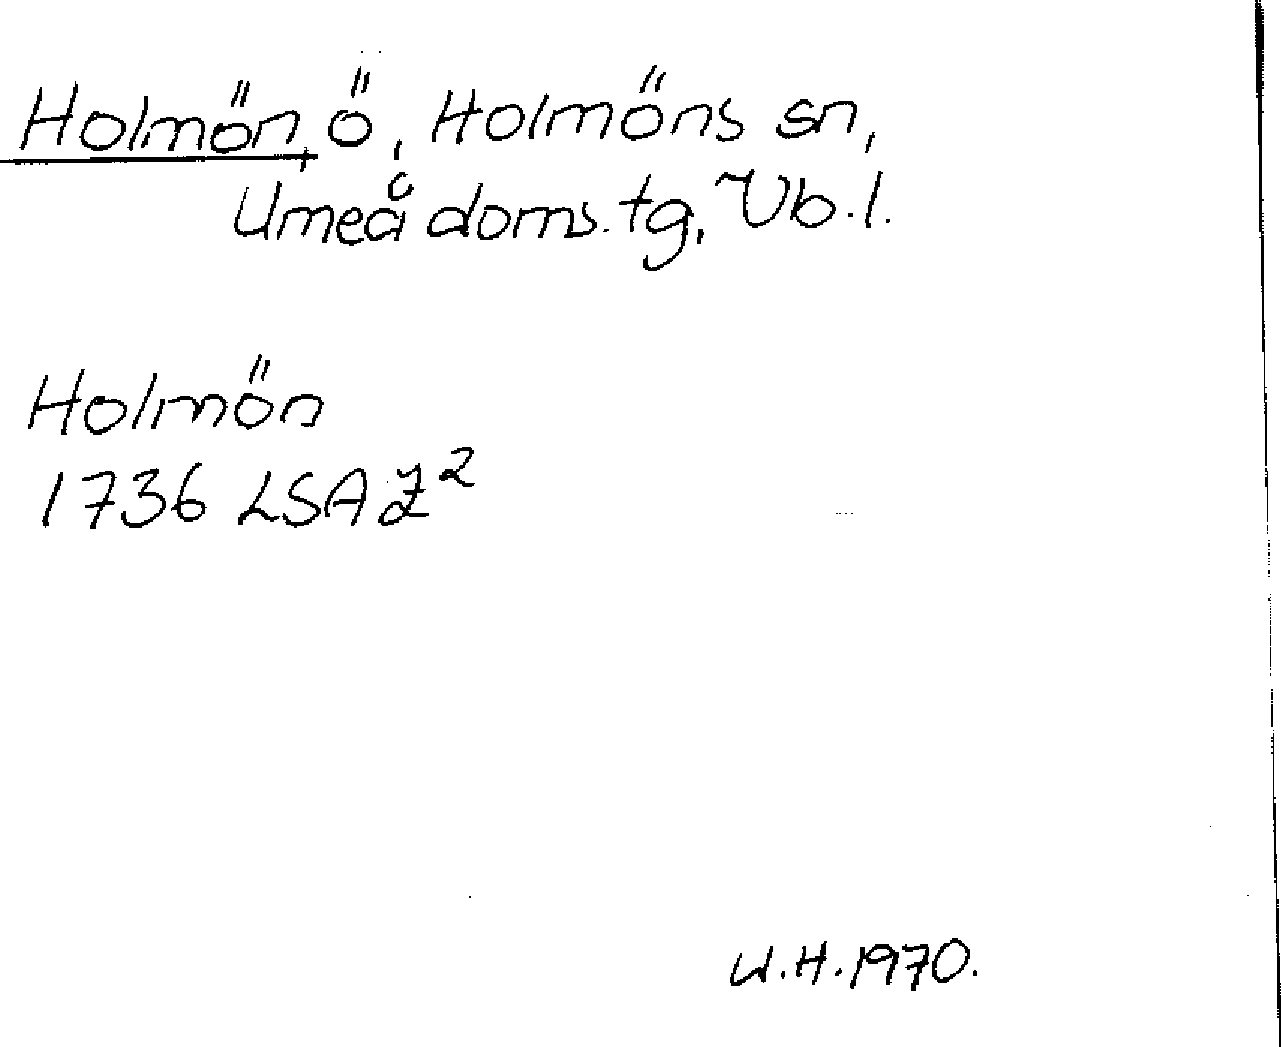 Holmön, ö, Holmöns sn,
Umeå doms. tg, Vb. l.
Holmön
1736 LSA Z²
U.H. 1970.